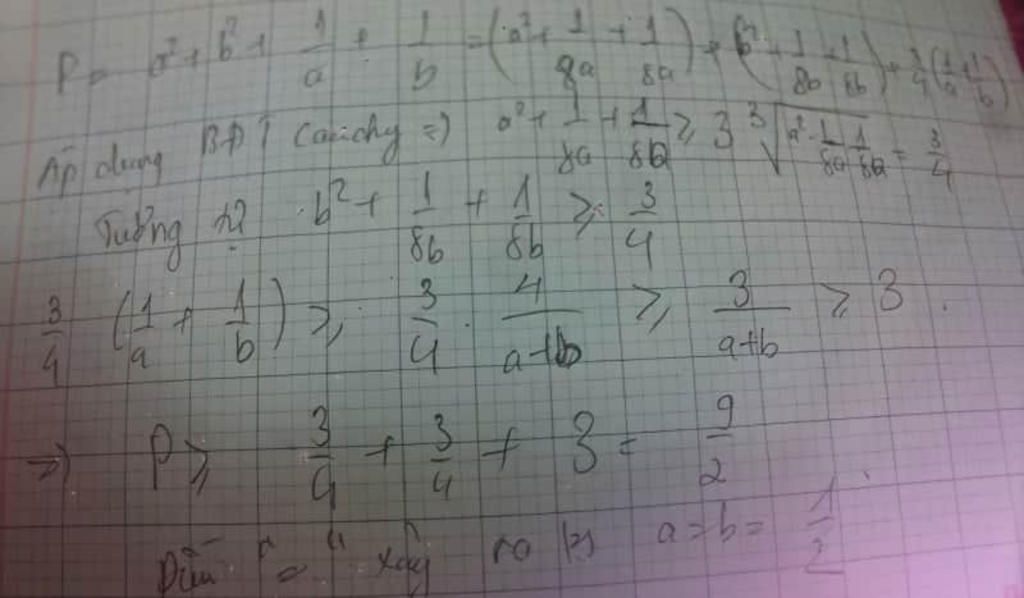 P = a² + b² + 1/a + 1/b = (a² + 1/8a + 1/8a) + (b² + 1/8b + 1/8b) + 3/4(1/a + 1/b)
Áp dụng BĐT Cauchy => a² + 1/8a + 1/8a ≥ 3 ∛(a² · 1/8a · 1/8a) = 3/4
Tương tự b² + 1/8b + 1/8b ≥ 3/4
3/4 (1/a + 1/b) ≥ 3/4 · 4/a+b ≥ 3/a+b ≥ 3.
=> P ≥ 3/4 + 3/4 + 3 = 9/2
Dấu "=" xảy ra <=> a = b = 1/2